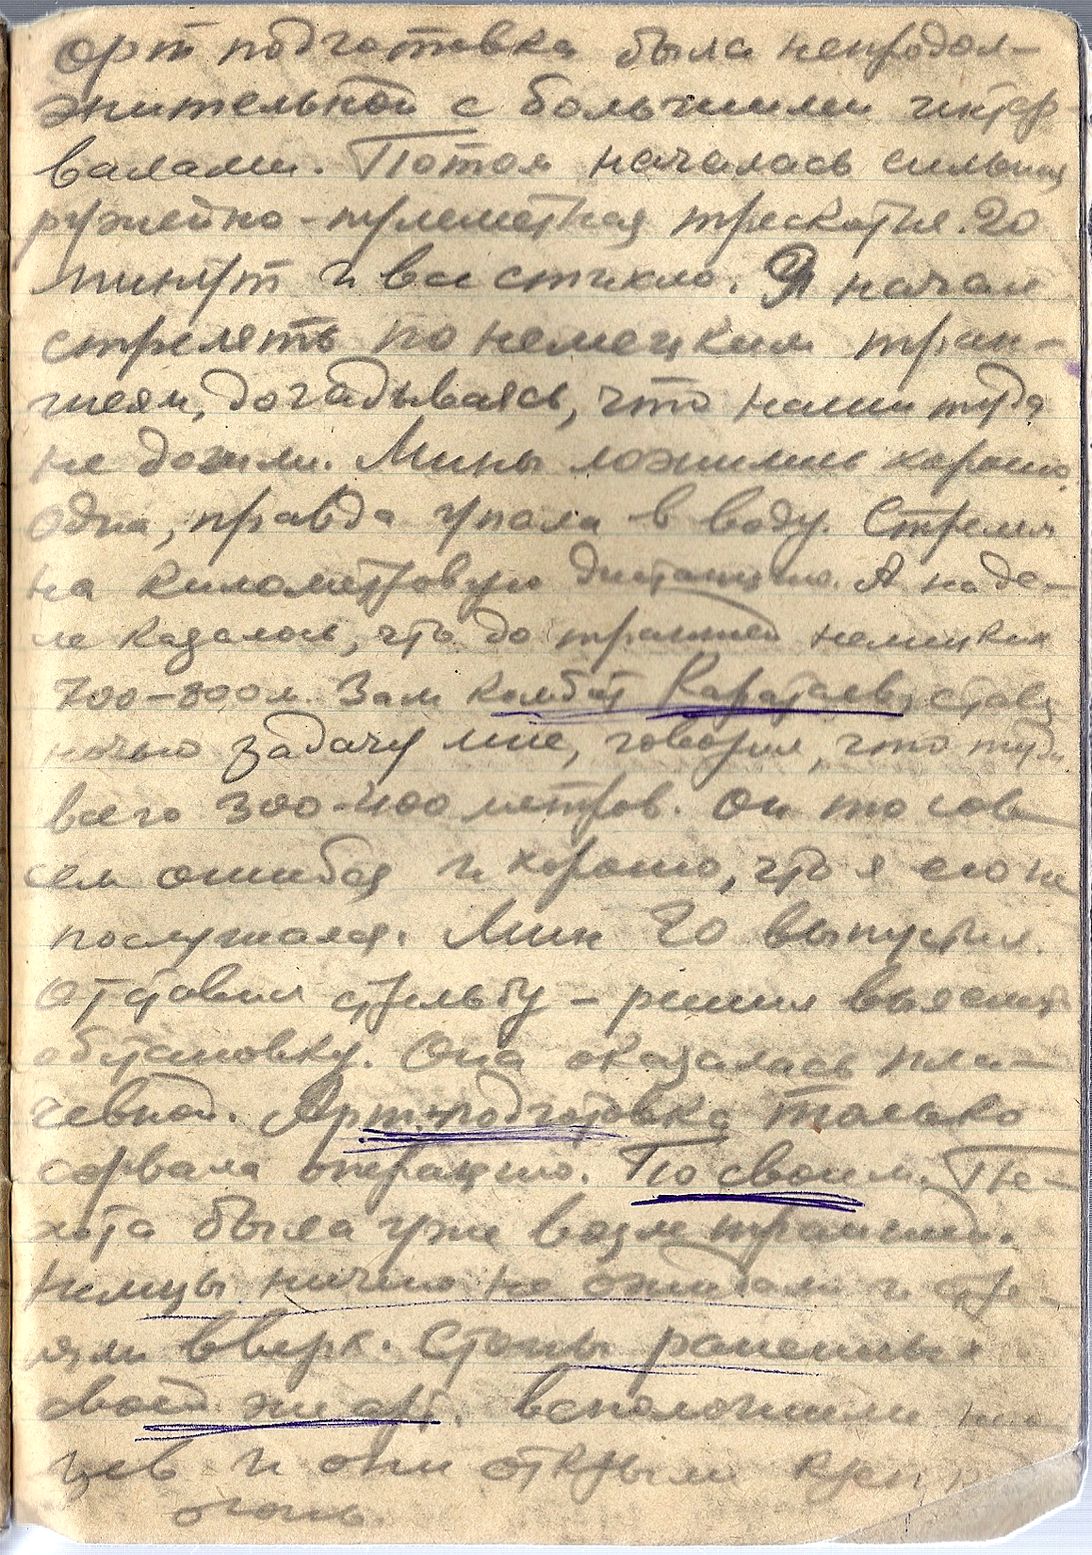 арт подготовка была непродол-
жительной с большими интер-
валами. Потом началась сильная
ружейно-пулеметная трескотня. 20
минут и все стихло. Я начал
стрелять по немецким тран-
шеям, догадываясь, что наши туда
не дошли. Мины ложились хорошо,
одна, правда упала в воду. Стрелял
на километровую дистанцию. А на де-
ле казалось, что до траншей немецких
700-800м. Зам комбат Каратаев, ставя
ночью задачу мне, говорил, что туда
всего 300-400 метров. Он то сов-
сем ошибся и хорошо, что я его не
послушался. Мин 20 выпустил.
Отставил стрельбу - решил выяснить
обстановку. Она оказалась пла-
чевной. Арт.подготовка только
сорвала операцию. По своим. Пе-
хота была уже возле траншей.
Немцы ничего не ожидали и стре-
ляли вверх. Стоны раненных
своей же арт. всполошили нем-
цев и они открыли
огонь.